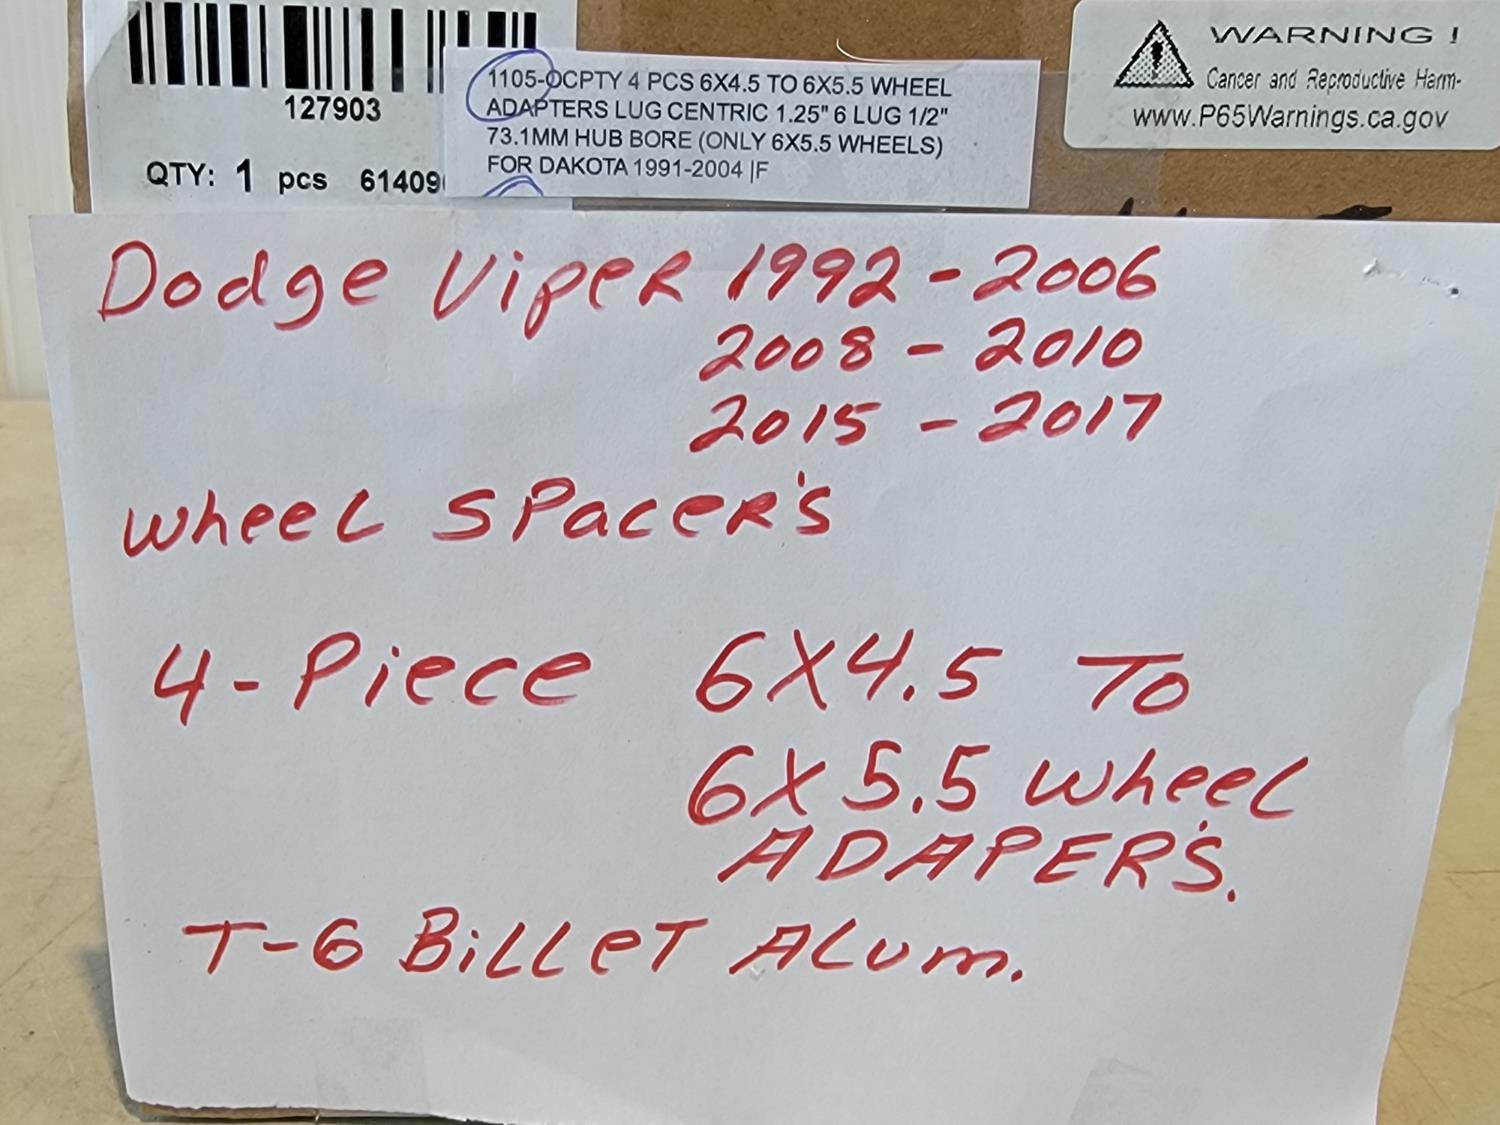 127903
QTY: 1 pcs 61409
1105-OCPTY 4 PCS 6X4.5 TO 6X5.5 WHEEL
ADAPTERS LUG CENTRIC 1.25" 6 LUG 1/2"
73.1MM HUB BORE (ONLY 6X5.5 WHEELS)
FOR DAKOTA 1991-2004 |F
WARNING !
Cancer and Reproductive Harm-
www.P65Warnings.ca.gov
Dodge Viper 1992 - 2006
2008 - 2010
2015 - 2017
wheel Spacer's
4-Piece 6X4.5 To
6X5.5 wheel
ADAPER'S.
T-6 Billet Alum.